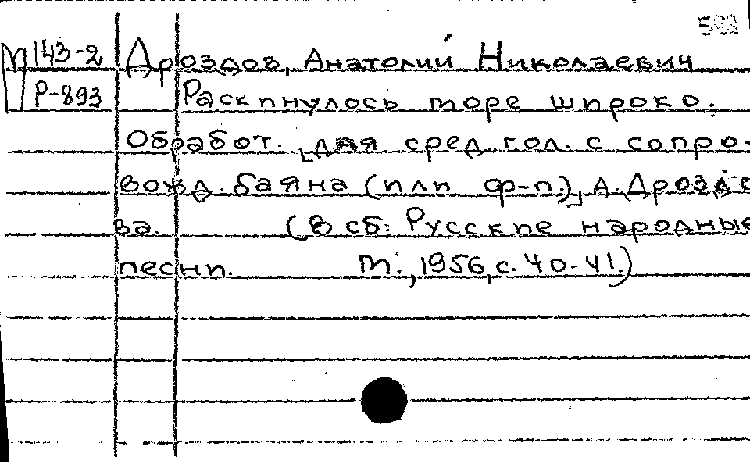 М 143-2 Дроздов, Анатолий Николаевич
Р-893 Раскинулось море широко.
Обработ. [для сред. гол. с сопро-
вожд. баяна (или ф-п.)] А. Дроздо
ва. (В сб: Русские народные
песни. М., 1956, с. 40-41.)